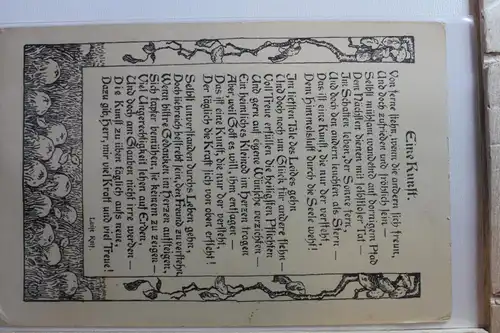 Eine Kunst.
Von ferne stehn, wenn die andern sich freun,
Und doch zufrieden und fröhlich sein —
Selbst mühsam wandelnd auf dornigem Pfad
Dem Nächsten dienen mit selbstloser Tat —
Im Schatten leben, der Sonne fern,
Und doch den andern leuchten als Stern —
Das ist eine Kunst, die nur der versteht,
Dem Himmelsluft durch die Seele weht!
Im tiefsten Tal des Leides gehn
Und doch noch um Glück für andere flehn —
Voll Treue erfüllen die heiligsten Pflichten
Und gern auf eigne Wünsche verzichten —
Ein heimliches Kleinod im Herzen tragen
Aber, weil Gott es will, ihm entsagen —
Das ist eine Kunst, die nur der versteht,
Der täglich die Kraft sich von oben erfleht!
Selbst unverstanden durchs Leben gehn,
Doch liebreich bestrebt sein, den Freund zu verstehn,
Wenn bittre Gedanken im Herzen aufsteigen,
Sich immer bemühen, sie keinem zu zeigen —
Viel Ungerechtigkeit sehen auf Erden
Und doch am Glauben nicht irre werden —
Die Kunst zu üben täglich aufs neue,
Dazu gib, Herr, mir viel Kraft und viel Treue!